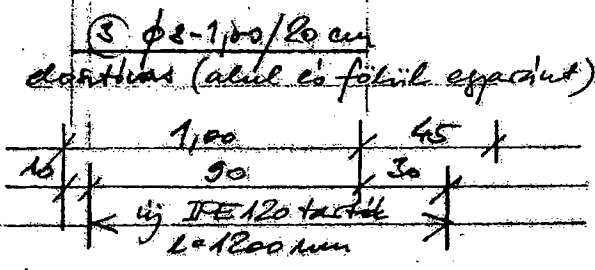 ③ ϕ8-1,00/20 cm
elosztóvas (alul és fölül egyaránt)
1,00 45
10 90 30
új IPE120 tartók
l=1200 mm